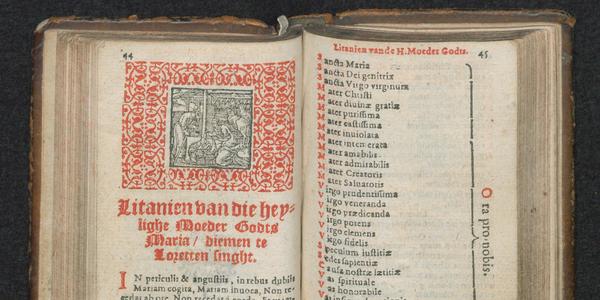 44
Litanien van die hey-
lighe Moeder Godts
Maria / diemen te
Loretten singht.
IN periculis & angustiis, in rebus dubiis
Mariam cogita, Mariam inuoca, Non re-
Litanien vande H. Moeder Godts. 45
Sancta Maria
Sancta Dei genitrix
Sancta Virgo virginum
Mater Christi
Mater diuinæ gratiæ
Mater purissima
Mater castissima
Mater inuiolata
Mater intemerata
Mater amabilis
Mater admirabilis
Mater Creatoris
Mater Saluatoris
Virgo prudentissima
Virgo veneranda
Virgo prædicanda
Virgo potens
Virgo clemens
Virgo fidelis
Speculum iustitiæ
Sedes sapientiæ
Causa nostræ lætitiæ
Vas spirituale
Vas honorabile
Ora pro nobis.